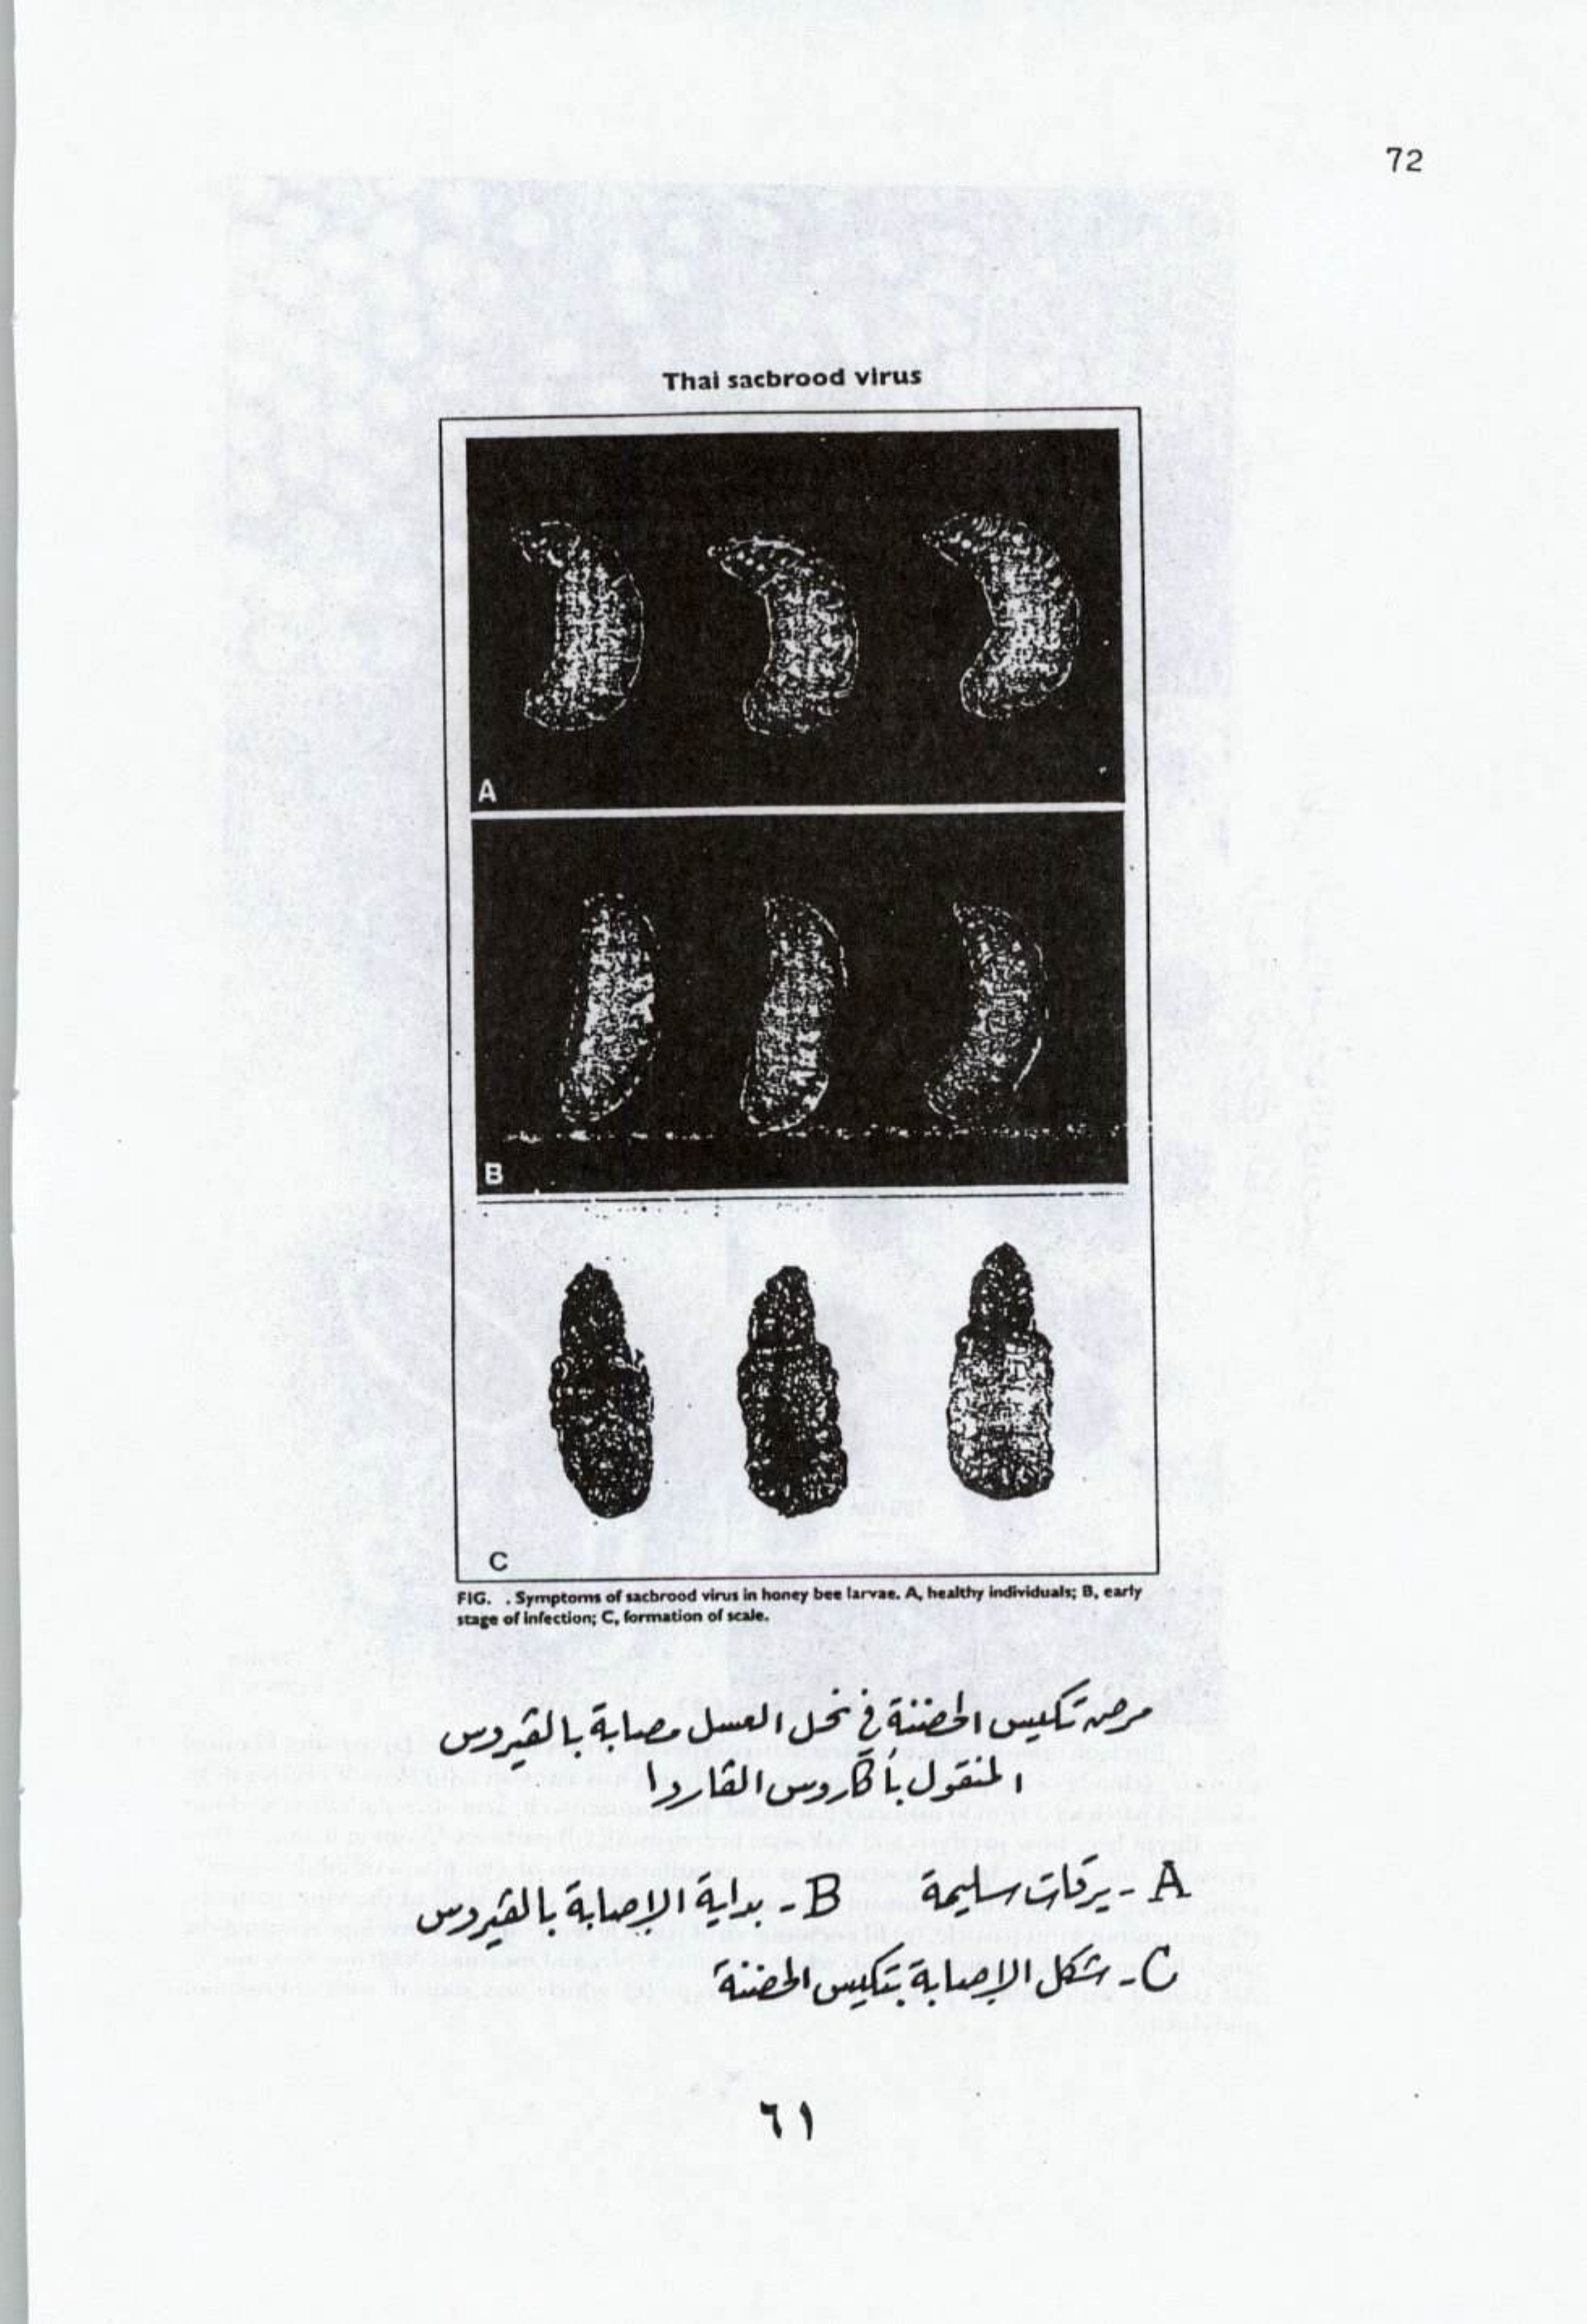 72
Thai sacbrood virus
A
B
C
FIG. . Symptoms of sacbrood virus in honey bee larvae. A, healthy individuals; B, early
stage of infection; C, formation of scale.
مرض تكييس الحضنة في نحل العسل مصابة بالڤيروس
المنقول بأكاروس الڤاروا
A - يرقات سليمة B - بداية الإصابة بالڤيروس
C - شكل الإصابة بتكيس الحضنة
٦١